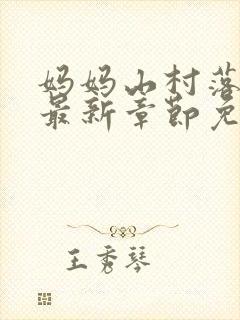 妈妈山村落
最新章节免
王秀琴